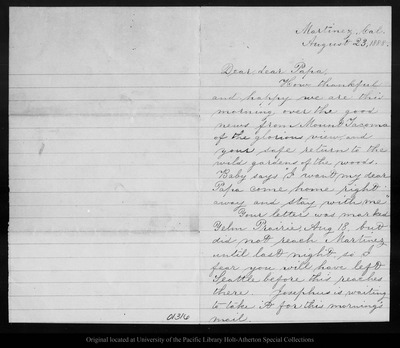 Martinez, Cal.
August 23, 1888.
Dear, dear Papa,
How thankful
and happy we are this
morning over the good
news from Mount Tacoma
of the glorious view, and
your safe return to the
wild gardens of the woods.
Baby says "I want my dear
Papa come home right
away and stay with me"
Your letter was marked
Yelm Prairie, Aug 18, but
did not reach Martinez
until last night, so I
fear you will have left
Seattle before this reaches
there. Josephus is waiting
to take it for this morning's
mail
01316
Original located at University of the Pacific Library Holt-Atherton Special Collections